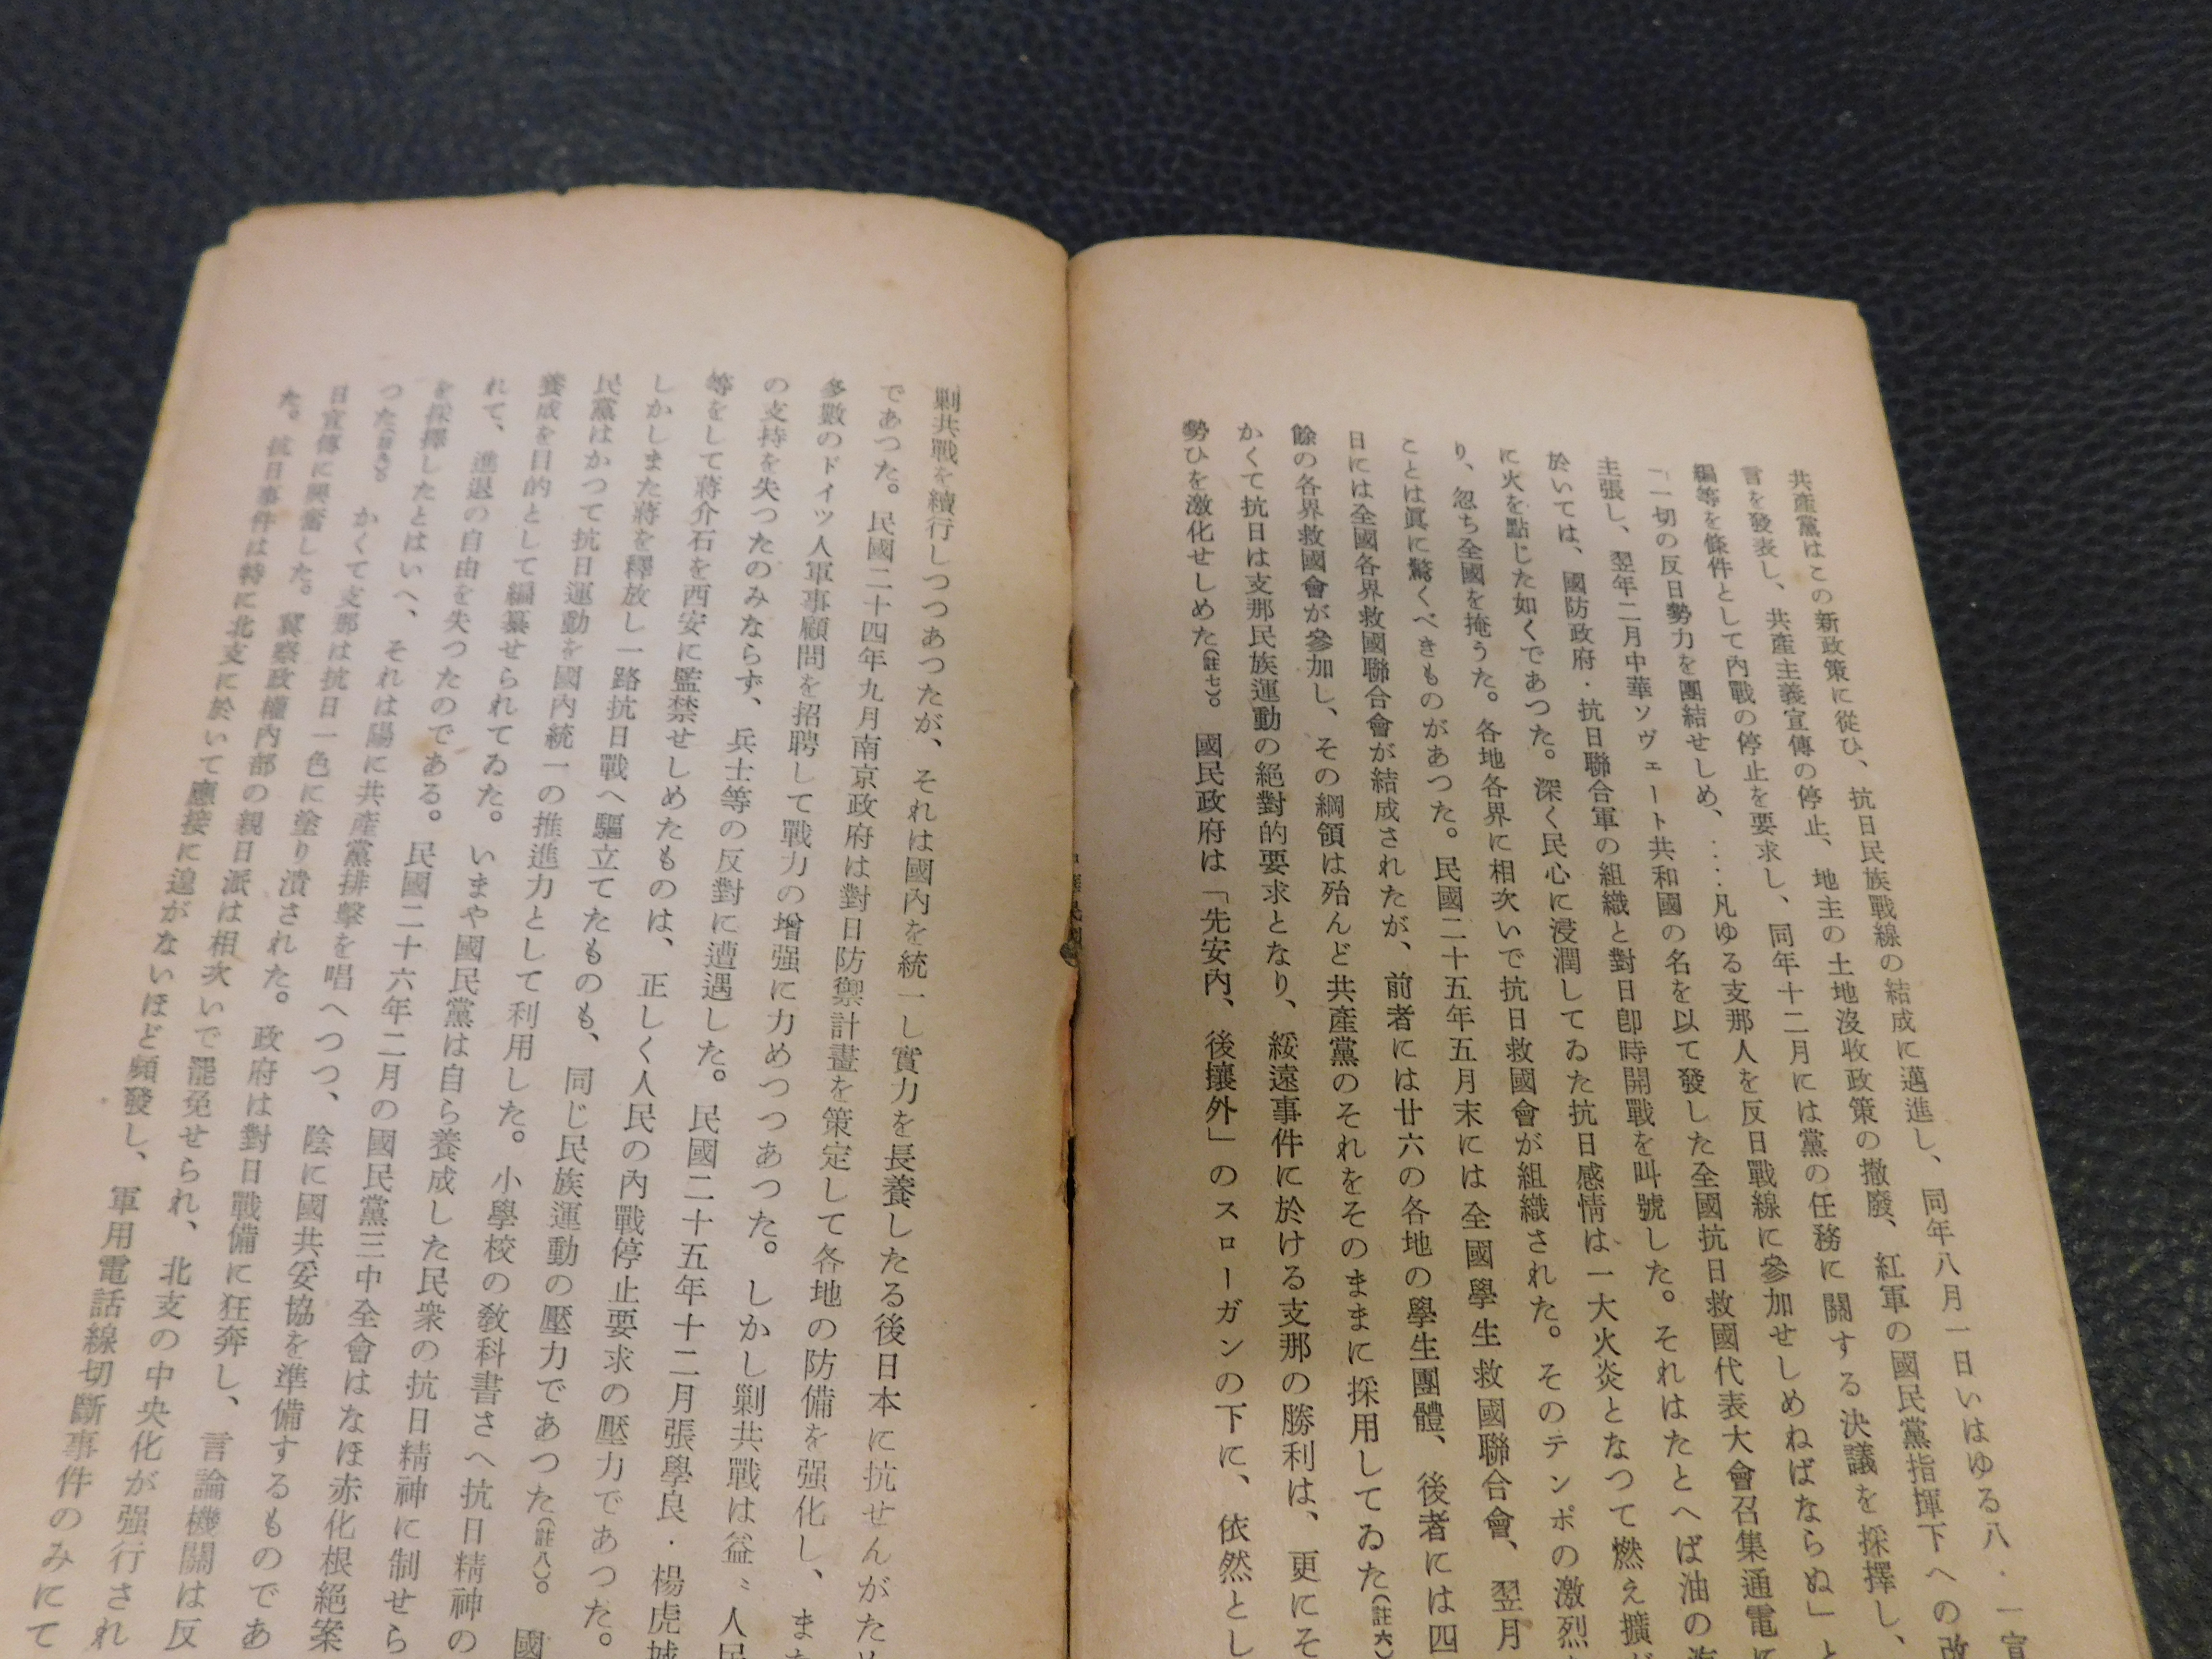 共產黨はこの新政策に從ひ、抗日民族戰線の結成に邁進し、同年八月一日いはゆる八・一宣
言を發表し、共產主義宣傳の停止、地主の土地沒收政策の撤廢、紅軍の國民黨指揮下への改
編等を條件として內戰の停止を要求し、同年十二月には黨の任務に關する決議を採擇し、
「一切の反日勢力を團結せしめ、‥‥凡ゆる支那人を反日戰線に參加せしめねばならぬ」と
主張し、翌年二月中華ソヴェート共和國の名を以て發した全國抗日救國代表大會召集通電に
於いては、國防政府・抗日聯合軍の組織と對日卽時開戰を叫號した。それはたとへば油の海
に火を點じた如くであつた。深く民心に浸潤してゐた抗日感情は一大火炎となつて燃え擴が
り、忽ち全國を掩うた。各地各界に相次いで抗日救國會が組織された。そのテンポの激烈
ことは眞に驚くべきものがあつた。民國二十五年五月末には全國學生救國聯合會、翌月
日には全國各界救國聯合會が結成されたが、前者には廿六の各地の學生團體、後者には四
餘の各界救國會が參加し、その綱領は殆んど共產黨のそれをそのままに採用してゐた(註六)
かくて抗日は支那民族運動の絕對的要求となり、綏遠事件に於ける支那の勝利は、更にそ
勢ひを激化せしめた(註七)。國民政府は「先安內、後攘外」のスローガンの下に、依然とし
剿共戰を續行しつつあつたが、それは國內を統一し實力を長養したる後日本に抗せんがため
であつた。民國二十四年九月南京政府は對日防禦計畫を策定して各地の防備を强化し、また
多數のドイツ人軍事顧問を招聘して戰力の增强に力めつつあつた。しかし剿共戰は益〻人民
の支持を失つたのみならず、兵士等の反對に遭遇した。民國二十五年十二月張學良・楊虎城
等をして蔣介石を西安に監禁せしめたものは、正しく人民の內戰停止要求の壓力であつた。
しかしまた蔣を釋放し一路抗日戰へ驅立てたものも、同じ民族運動の壓力であつた(註八)。國
民黨はかつて抗日運動を國內統一の推進力として利用した。小學校の敎科書さへ抗日精神の
養成を目的として編纂せられてゐた。いまや國民黨は自ら養成した民衆の抗日精神に制せら
れて、進退の自由を失つたのである。民國二十六年二月の國民黨三中全會はなほ赤化根絕案
を採擇したとはいへ、それは陽に共產黨排擊を唱へつつ、陰に國共妥協を準備するものであ
つた(註九)。かくて支那は抗日一色に塗り潰された。政府は對日戰備に狂奔し、言論機關は反
日宣傳に興奮した。冀察政權內部の親日派は相次いで罷免せられ、北支の中央化が强行され
た。抗日事件は特に北支に於いて應接に遑がないほど頻發し、軍用電話線切斷事件のみにて